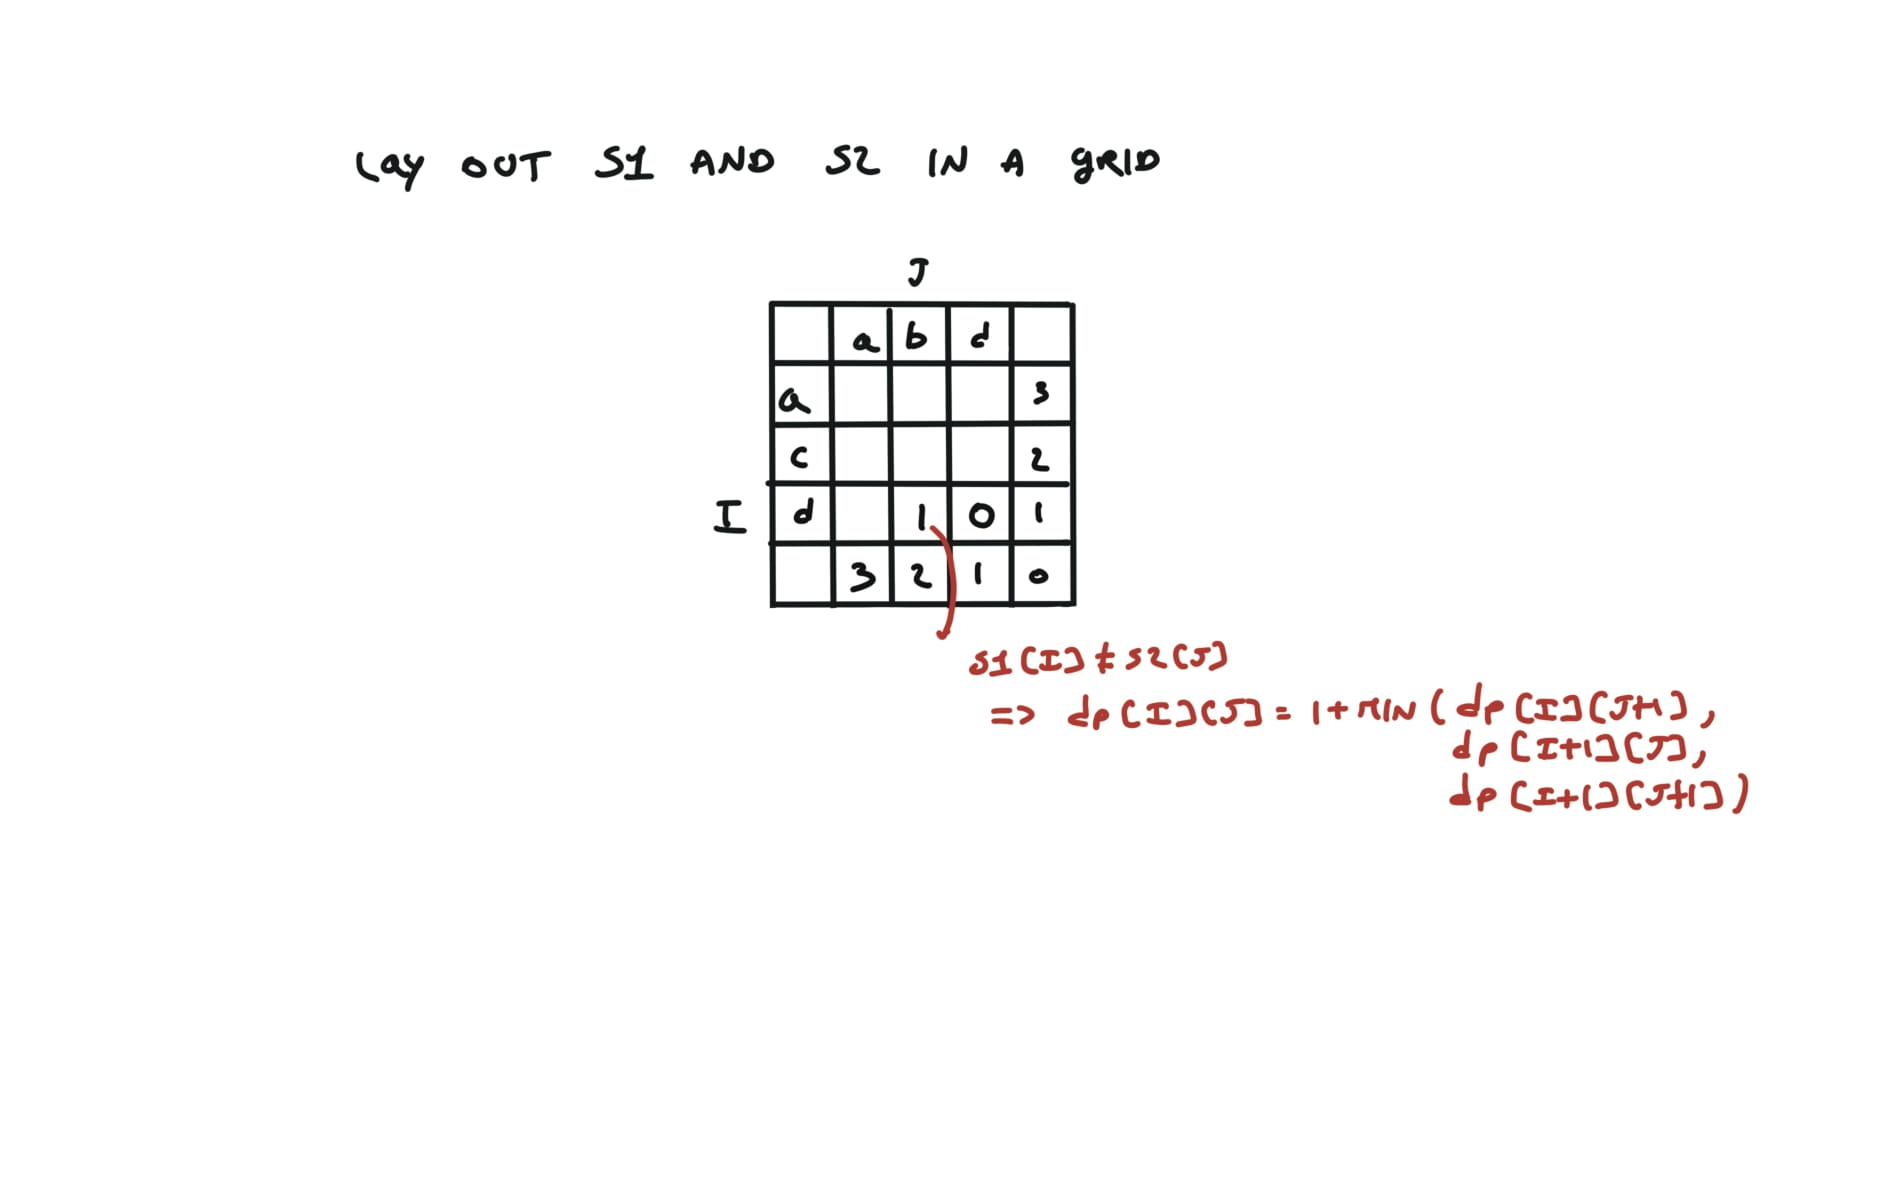 Lay OUT S1 AND S2 IN A gRID
J
a b d
a 3
c 2
I d 1 0 1
3 2 1 0
S1[I] ≠ S2[J]
=> dp[I][J] = 1 + MIN ( dp[I][J+1],
dp[I+1][J],
dp[I+1][J+1] )